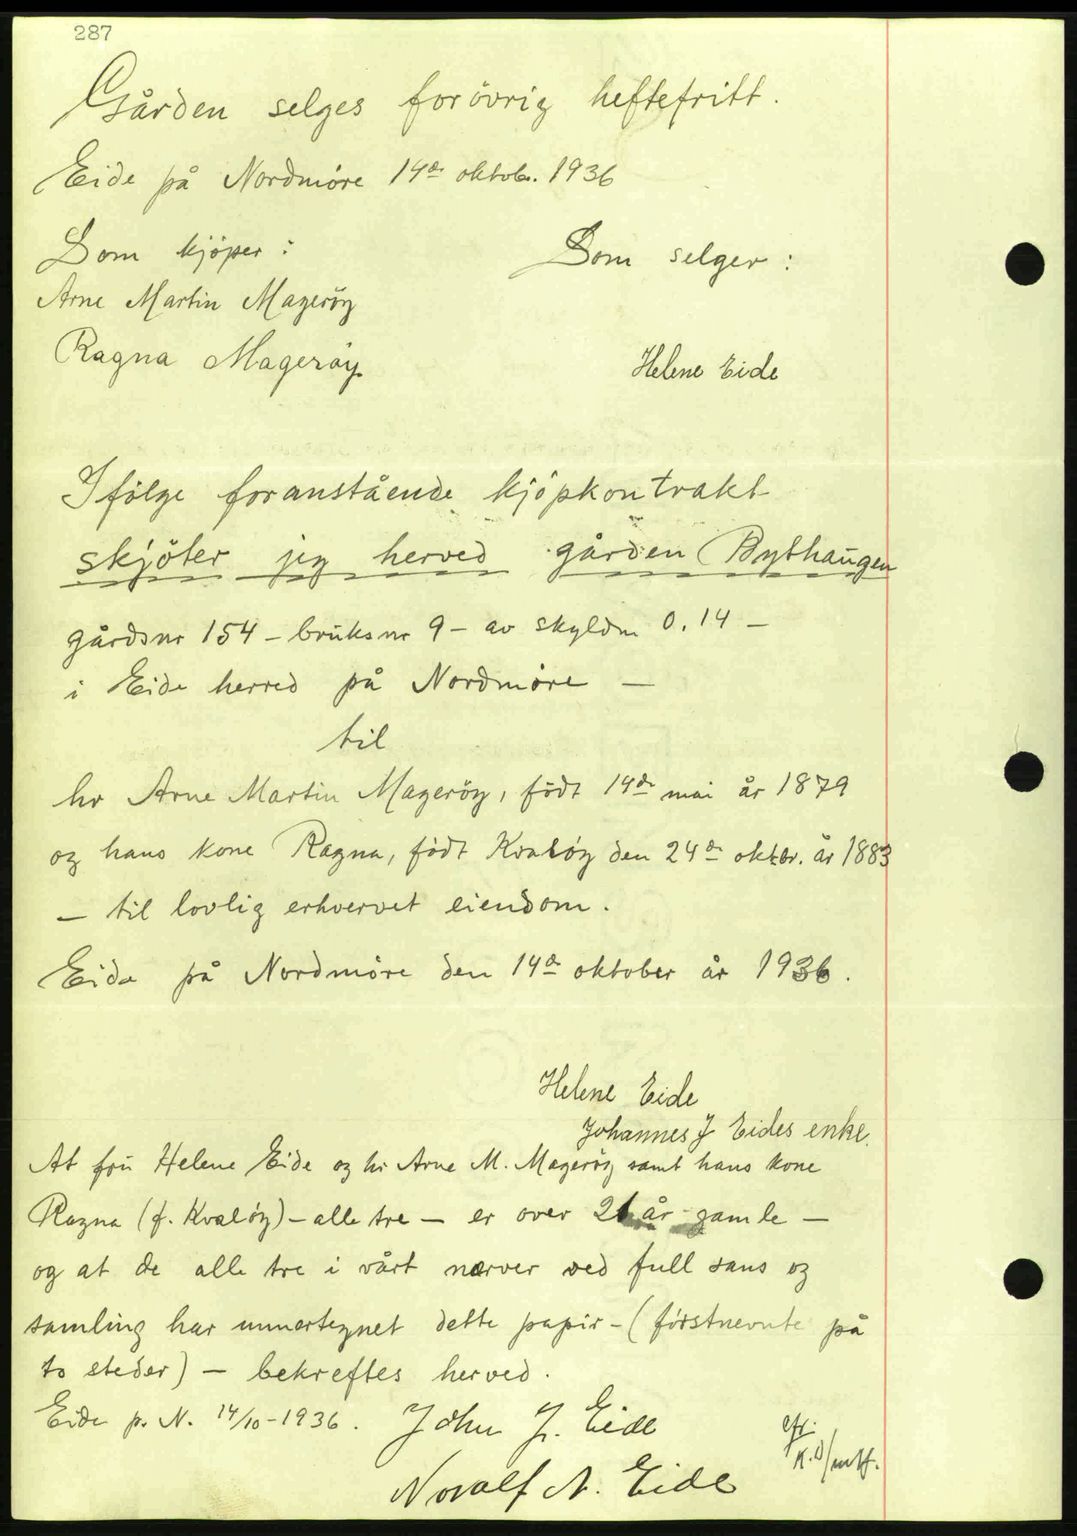 287
Gården selges forövrig heftefritt.
Eide på Nordmöre 14de oktob. 1936
Som kjöper:
Som selger:
Arne Martin Mageröy
Ragna Mageröy
Helene Eide
Ifölge foranstående kjöpkontrakt
skjöter jeg herved gården Bythaugen
gårdsnr 154 – bruksnr 9 – av skyldm 0.14 –
i Eide herred på Nordmöre –
til
hr Arne Martin Mageröy, födt 14de mai år 1879
og hans kone Ragna, födt Kvalöy den 24de oktbr. år 1883
– til lovlig erhvervet eiendom.
Eide på Nordmöre den 14de oktober år 1936.
Helene Eide
Johannes J Eides enke.
At fru Helene Eide og hr Arne M. Mageröy samt hans kone
Ragna (f. Kvalöy) – alle tre – er over 21 år gamle –
og at de alle tre i vårt nærver ved full sans og
samling har unnertegnet dette papir – (förstnevnte på
to steder) – bekreftes herved.
Eide p. N. 14/10-1936.
John J. Eide
Noralf A. Eide